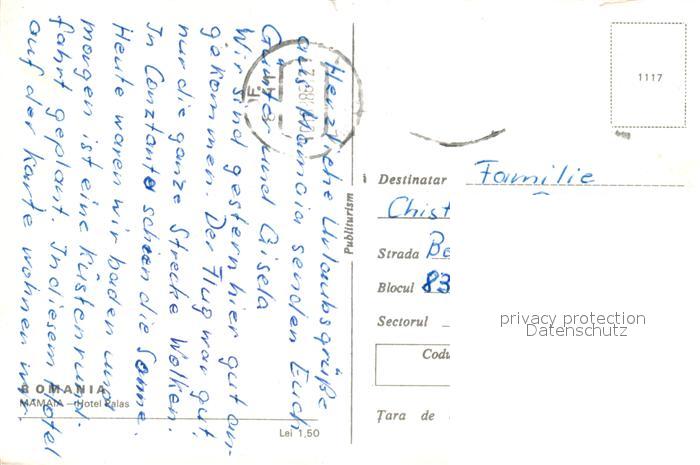 Herzliche Urlaubsgrüße
aus Mamaia senden Euch
Günter und Gisela
Wir sind gestern hier gut an-
gekommen. Der Flug war gut,
nur die ganze Strecke Wolken.
In Constanta schien die Sonne.
Heute waren wir baden und
morgen ist eine Küstenrund-
fahrt geplant. In diesem Hotel
auf der Karte wohnen wir
ROMANIA
MAMAIA — Hotel Palas
Lei 1,50
Publiturism
1117
Destinatar Familie
Chist
Strada Be
Blocul 83
Sectorul
Codu
Ţara de
privacy protection
Datenschutz